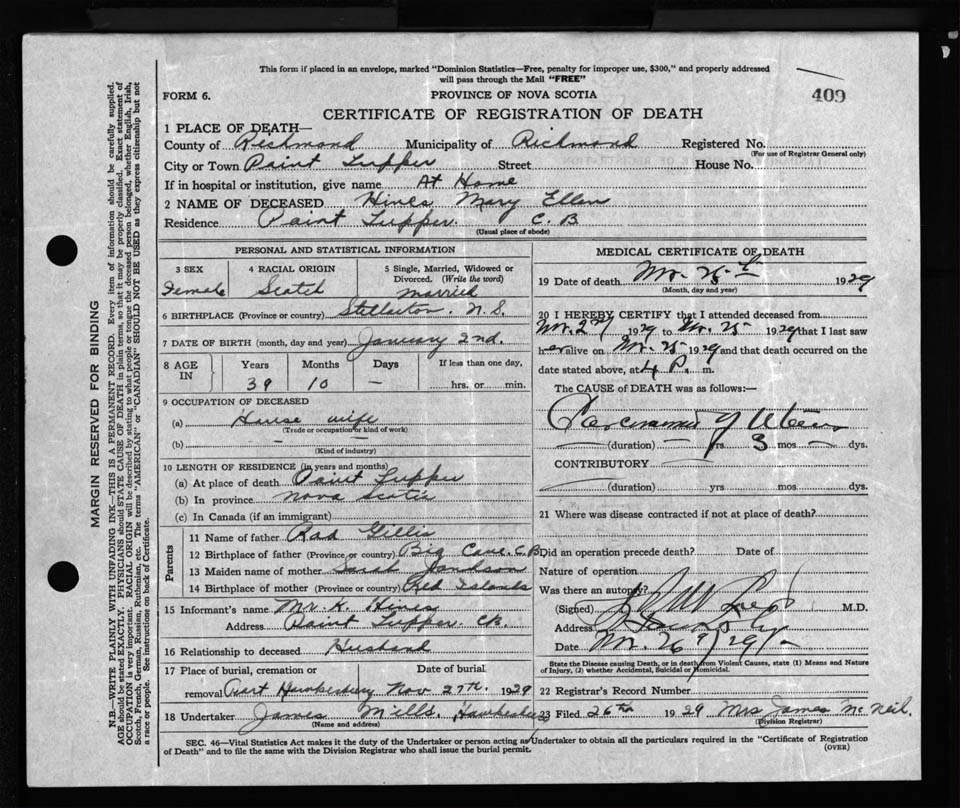 This form if placed in an envelope, marked "Dominion Statistics—Free, penalty for improper use, $300," and properly addressed
will pass through the Mail "FREE"
FORM 6. PROVINCE OF NOVA SCOTIA 409
CERTIFICATE OF REGISTRATION OF DEATH
1 PLACE OF DEATH—
County of Richmond Municipality of Richmond Registered No.
(For use of Registrar General only)
City or Town Point Tupper Street House No.
If in hospital or institution, give name At Home
2 NAME OF DECEASED Hines Mary Ellen
Residence Point Tupper. C. B
(Usual place of abode)
PERSONAL AND STATISTICAL INFORMATION
3 SEX 4 RACIAL ORIGIN 5 Single, Married, Widowed or Divorced. (Write the word)
Female Scotch married
6 BIRTHPLACE (Province or country) Stellarton. N. S.
7 DATE OF BIRTH (month, day and year) January 2nd.
8 AGE IN Years Months Days If less than one day,
39 10 — hrs. or min.
9 OCCUPATION OF DECEASED
(a) House wife
(Trade or occupation or kind of work)
(b) — —
(Kind of industry)
10 LENGTH OF RESIDENCE (in years and months)
(a) At place of death Point Tupper
(b) In province Nova Scotia
(c) In Canada (if an immigrant)
Parents
11 Name of father Gillis
12 Birthplace of father (Province or country) Big Cove. C.B.
13 Maiden name of mother Sarah
14 Birthplace of mother (Province or country) Red Islands
15 Informant's name Mr. K. Hines
Address Point Tupper CB.
16 Relationship to deceased Husband
17 Place of burial, cremation or Date of burial
removal Port Hawkesbury Nov. 27th. 1929
18 Undertaker James Mills, Hawkesbury
(Name and address)
MEDICAL CERTIFICATE OF DEATH
19 Date of death Nov. 25th 1929
(Month, day and year)
20 I HEREBY CERTIFY that I attended deceased from
Nov. 2nd 1929 to Nov. 25 1929 that I last saw
her alive on Nov. 25 1929 and that death occurred on the
date stated above, at 4 P. m.
The CAUSE of DEATH was as follows:—
Carcinoma of Uterus
(duration) — yrs 3 mos — dys.
CONTRIBUTORY
(duration) yrs mos dys.
21 Where was disease contracted if not at place of death?
Did an operation precede death? Date of
Nature of operation
Was there an autopsy?
(Signed) M.D.
Address
Date Nov. 26th /29
State the Disease causing Death, or in death from Violent Causes, state (1) Means and Nature
of Injury, (2) whether Accidental, Suicidal or Homicidal.
22 Registrar's Record Number
23 Filed 26th 1929 Mrs James McNeil.
(Division Registrar)
SEC. 46—Vital Statistics Act makes it the duty of the Undertaker or person acting as Undertaker to obtain all the particulars required in the "Certificate of Registration
of Death" and to file the same with the Division Registrar who shall issue the burial permit. (OVER)
MARGIN RESERVED FOR BINDING
N.B.—WRITE PLAINLY WITH UNFADING INK—THIS IS A PERMANENT RECORD. Every item of information should be carefully supplied.
AGE should be stated EXACTLY. PHYSICIANS should STATE CAUSE OF DEATH in plain terms, so that it may be properly classified. Exact statement of
OCCUPATION is very important. RACIAL ORIGIN will be described by stating to what people or tongue the deceased person belonged, whether English, Irish,
Scotch, French, German, Russian, Ruthenian, etc. The terms "AMERICAN" or "CANADIAN" SHOULD NOT BE USED as they express citizenship but not
a race or people. See instructions on back of Certificate.